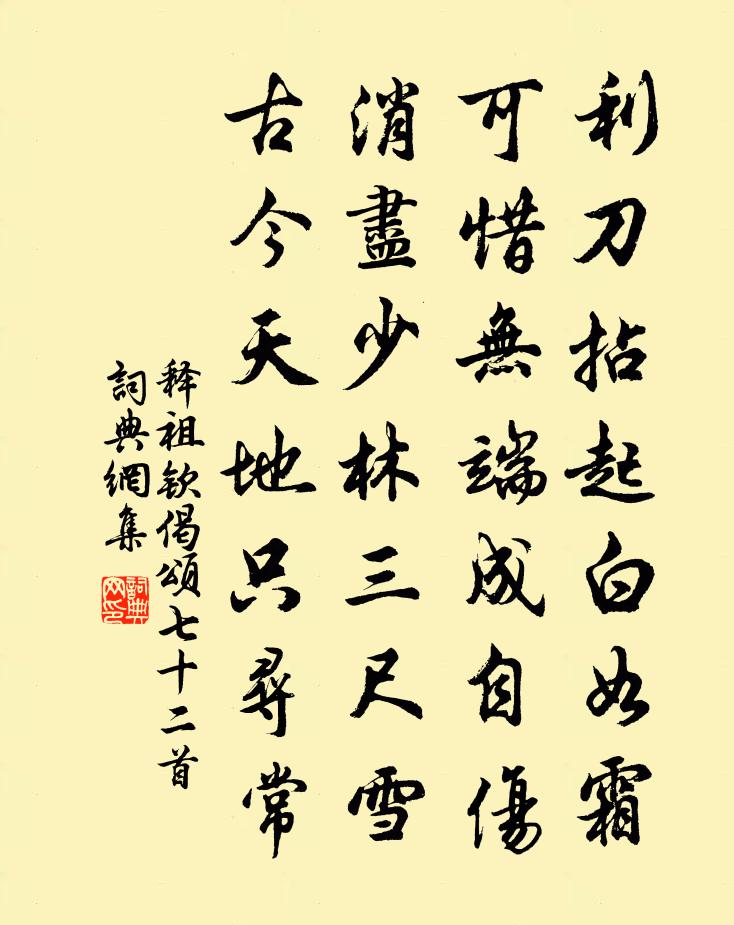 利刀拈起白如霜
可惜無端成自傷
消盡少林三尺雪
古今天地只尋常
释祖钦偈颂七十二首
詞典網集
詞典網印